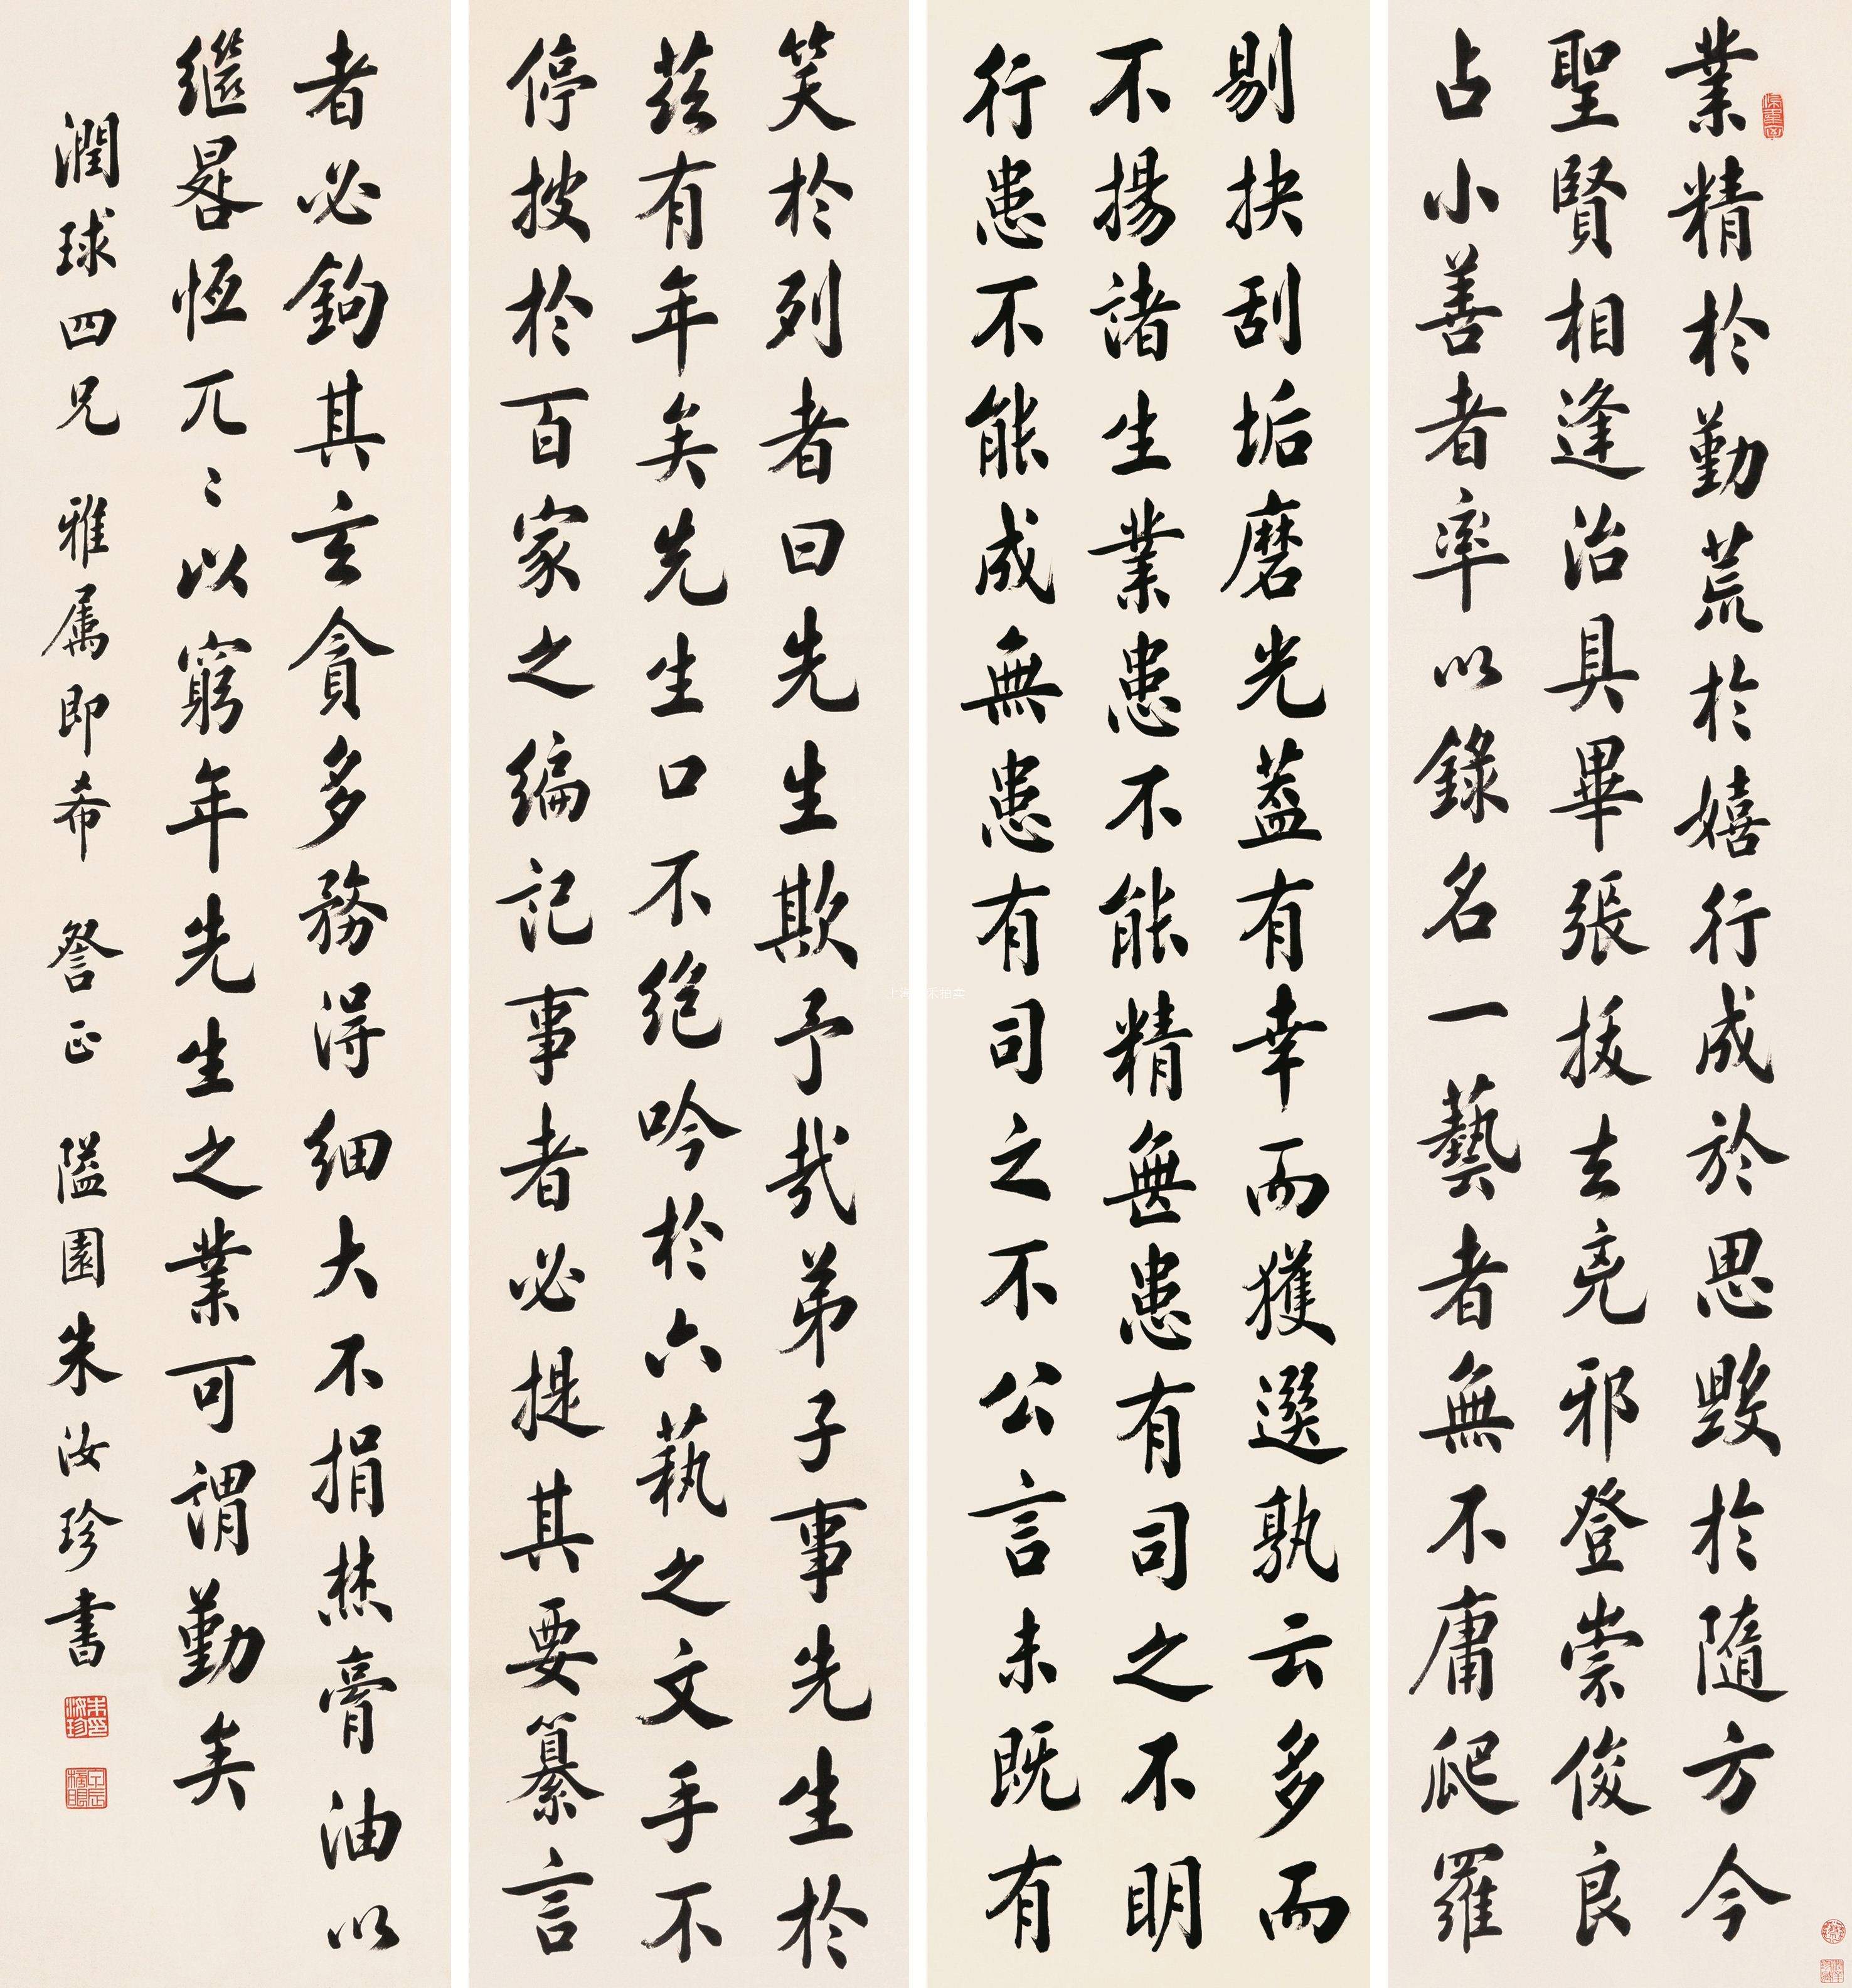 業精於勤荒於嬉行成於思毀於隨方今
聖賢相逢治具畢張拔去兇邪登崇俊良
占小善者率以錄名一藝者無不庸爬羅
剔抉刮垢磨光蓋有幸而獲選孰云多而
不揚諸生業患不能精無患有司之不明
行患不能成無患有司之不公言未既有
笑於列者曰先生欺予哉弟子事先生於
茲有年矣先生口不絕吟於六蓺之文手不
停披於百家之編記事者必提其要纂言
者必鉤其玄貪多務得細大不捐焚膏油以
繼晷恆兀〻以窮年先生之業可謂勤矣
潤球四兄 雅属即希 詧正 隘園朱汝珍書
朱印汝珍
甲辰榜眼